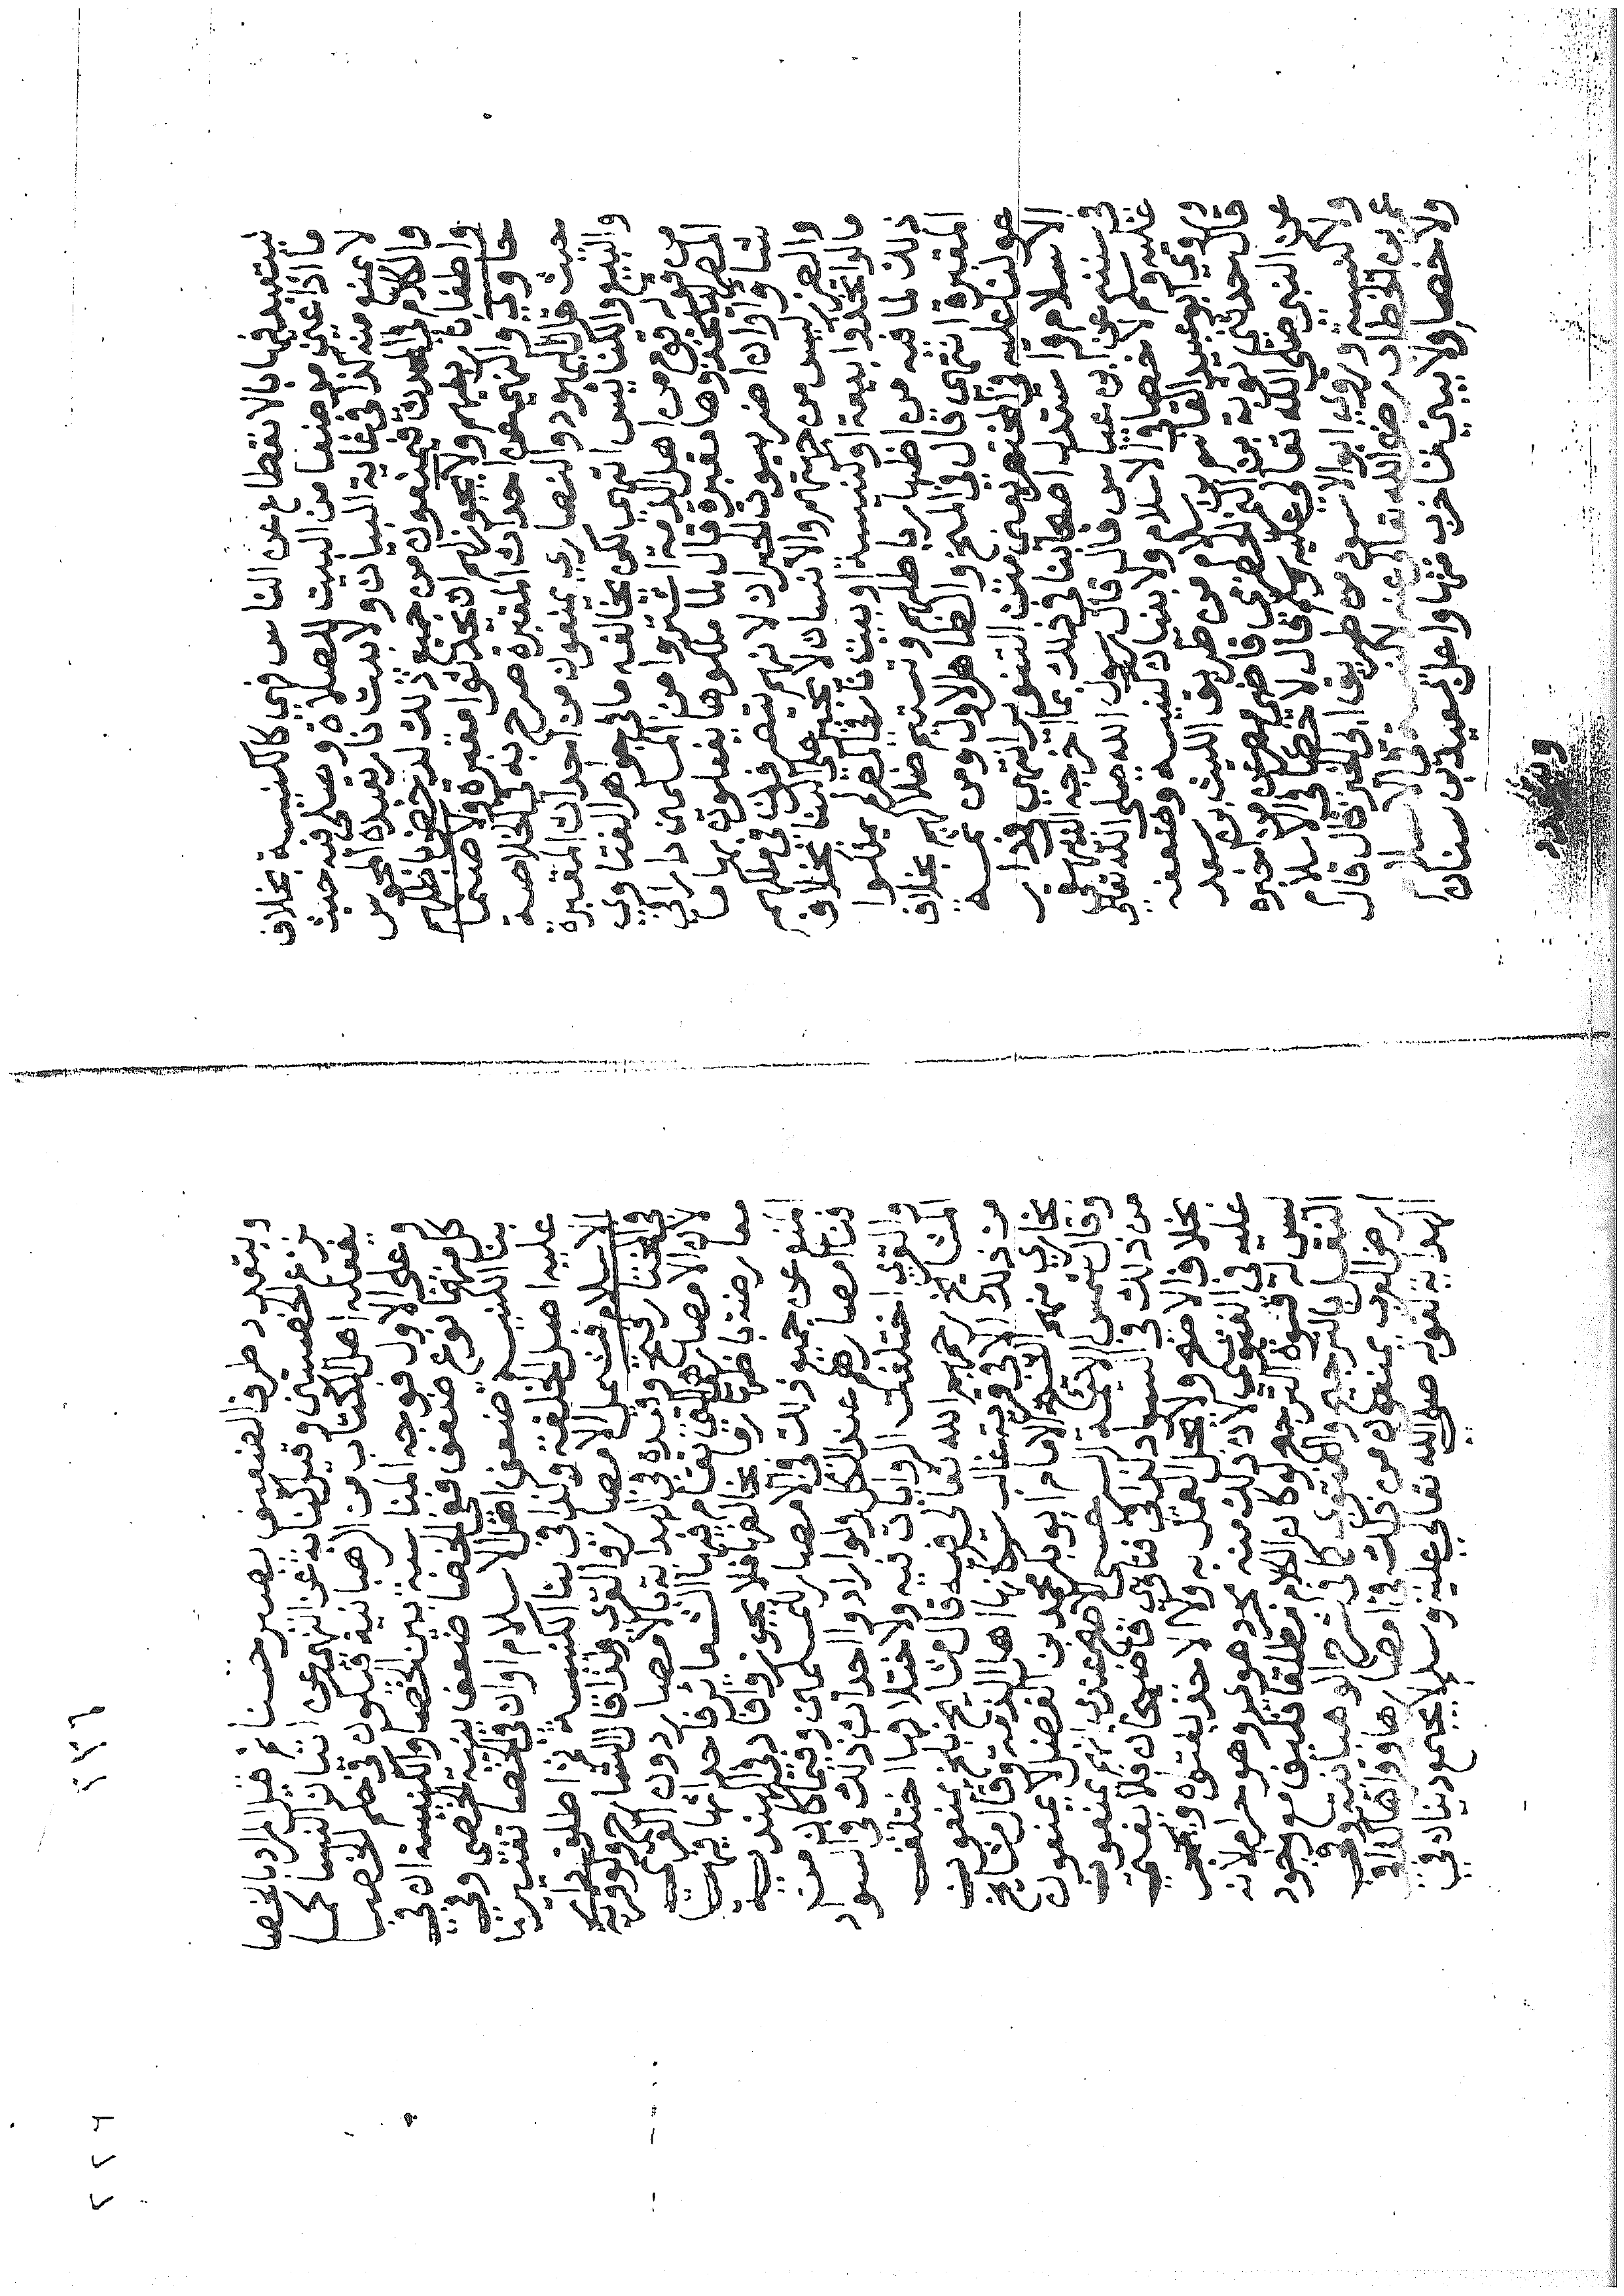 يتعبد فيها بالانقطاع عن الناس فهي كالكنيسة بخلاف
ما اذا عين موضعا من البيت للصلاة وصلى فيه حيث
لا يمنع منه كذا في غاية البيان ولا بيت نار يعبده المجوس
والكلام في المدن فيمنعون من جميع ذلك
ولا يجوز لهم ان يحدثوا مقبرة
حاوي والنهي عن احداث المقبرة صرح به في الخلاصة
حيث قال اليهود والنصارى يمنعون من احداث المقبرة
والبيع والكنايس انتهى لكن يخالفه ما في جواهر الفتاوى
من قوله قوم من اهل الذمة اشتروا من المسلمين دارا في
المصر ليتخذوها مقبرة قال لما ملكوها يفعلون بها ما
شاؤا وان اضر ببيوت الجيران لانهم يتصرفون في ملكهم
والضرر ليس من جهتهم والانسان لا يجبر على البنا بخلاف
ما لو اتخذوا بيعة او كنيسة او بيت نار في المصر لم يملكوا
ذلك لما فيه من اظهار باطلهم وتشتيم ضلالهم بخلاف
المقبرة انتهى قال في المنح والظاهر الاول ومن ثمة
عولنا عليه في المختصر يعني متن التنوير انتهى
الاسلام واستدل اصحابنا في ذلك بما اخرجه البيهقي
في سننه عن ابن عباس قال قال رسول الله صلى الله تعالى
عليه وسلم لا خصا في الاسلام ولا بنيان كنيسة وضعفه
وروى ابو عبيد القاسم بن سلام من طريق الليث بن سعد
قال حدثني توبة بن النمر الحضرمي قاضي مصر عمن اخبره
عن النبي صلى الله تعالى عليه وسلم قال لا خصا في الاسلام
ولا كنيسة وروى ابو الاسود من طريق ابي الخير قال قال
عمر بن الخطاب رضي الله تعالى عنه لا كنيسة في الاسلام
ولا خصا ولا يبنى ما خرب منها واعل بسعيد بن سنان
وبتعدد
وبتعدد طرق الضعيف يصير حسنا ثم قيل المراد بالخصا
نزع الخصيتين وقيل كناية عن النهي عن اتيان النسا كما
يفعله اهل الكتاب من الرهبانية فتكون في حكم الخصي
وعلى الاول فوجه المناسبة بين الخصا والكنيسة ان في
كل منهما نوع ضعف ففي الخصا ضعف بنية الخصي وفي
بنا الكنيسة ضعف اهل الاسلام او ان في الخصا تغيير ما
عليه اصل الخلقة وكذا في بنا الكنيسة ثم اطلق دار
الاسلام فشمل الامصار والقرى ولذا قال الشارح ولو قرية
في المختار فتح وقيده في الهداية بالامصار دون القرى
لان الامصار هي التي تقام فيها الشعائر فاحداثها فيها
معارضة باظهار ما يخالفها فلا يجوز وافاد الكمال
المنع عن جميع ذلك في امصار المسلمين وفيما كان من
فنا مصارهم عند الكل ولو ارادوا احداث ذلك في السواد
والقرى اختلفت الروايات فيه ولاختلافها اختلفت
المشايخ رحمهم الله تعالى فيه قال مشايخ بلخ يمنعون
من ذلك الا في قرية غالب سكانها اهل الذمة وقال مشايخ
بخارى منهم الشيخ الامام ابو بكر محمد بن الفضل لا يمنعون
وقال شمس الائمة السرخسي الاصح عندي انهم يمنعون
من ذلك في السواد كذا في فتاوى قاضيخان فلا يفتى
بخلافه الا ضعه ولا يحل العمل به ولا الاخذ بفتواه ويحجر
عليه في الفتوى لان ذلك منه مجرد هوى وهو حرام لانه
ليس له قوة الترجيح لو كان الكلام مطلقا فكيف مع وجود
النقل بالترجيح والفتوى كما في شرح الوهبانية وفي
ارض العرب يمنعون من ذلك في امصارها وقراها كذا في
الهداية لقوله صلى الله تعالى عليه وسلم لا يجتمع دينان في